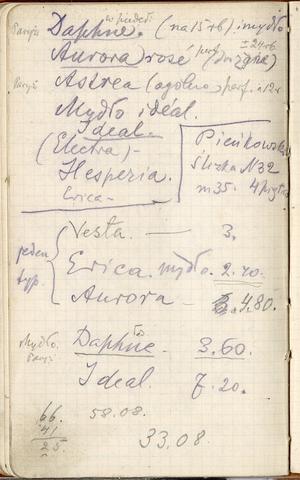 w pudeł.
Paryż Daphne. (na 15 rb) i mydło
Aurora rosé perf.
Paryż Astrea (ogólne) perf.
Mydło idéal.
Ideal
(Electra) –
Hesperia.
Erica –
Pieńkowska
Śliska N 32
m 35. 4 piętro
Vesta. — 3.
jeden typ.
Erica. mydło. 2.40.
Aurora – 4.80.
Mydło. Paryż
Daphne. 3.60.
Ideal. 7.20.
66.
41
25.
58.08.
33.08